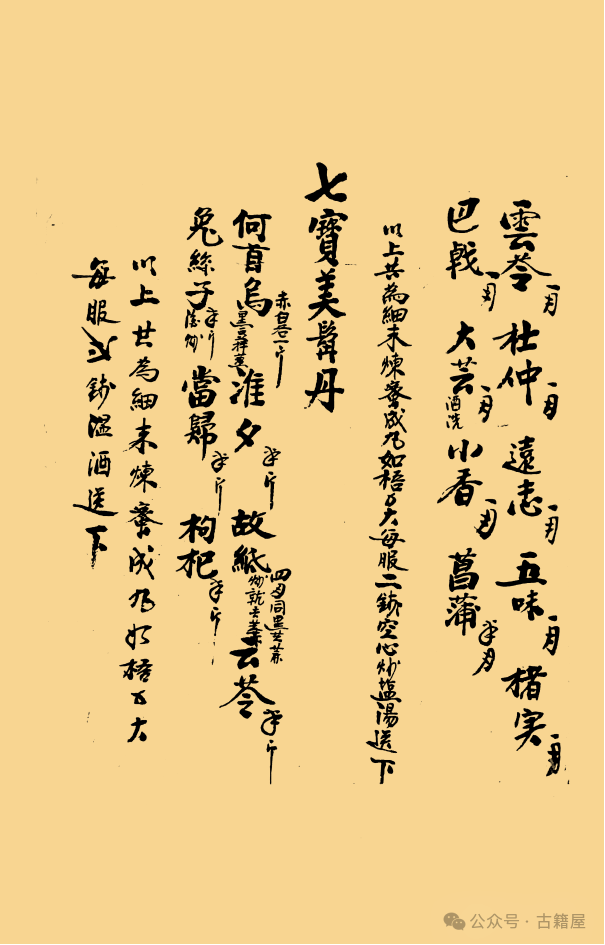 雲苓一両 杜仲一両 遠志一両 五味一両 楮实一両
巴戟一両 大芸酒洗一両 小香一両 菖蒲半両
以上共為細末煉蜜成丸如梧子大每服二錢空心炒塩湯送下
七寶美髯丹
何首烏赤白各一斤黑豆拌蒸 淮夕半斤 故紙四両同黑芝蔴炒就去芝蔴 云苓半斤
兔絲子半斤酒炒 當歸半斤 枸杞半斤
以上共為細末煉蜜成丸如梧子大
每服錢溫酒送下
公众号·古籍屋